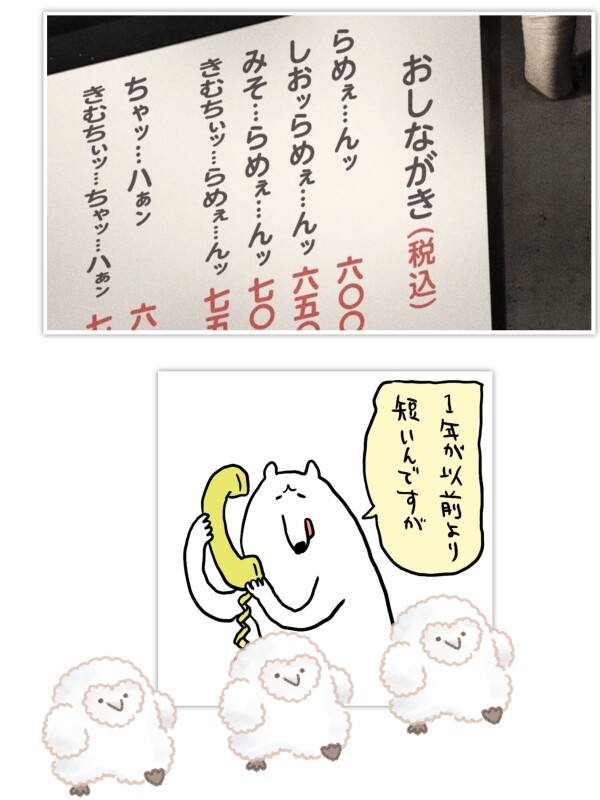 おしながき(税込)
らめぇ…んッ 六〇〇
しおッらめぇ…んッ 六五〇
みそ…らめぇ…んッ 七〇
きむちぃッ…らめぇ…んッ 七五
ちャッ…ハぁン 六
きむちぃッ…ちャッ…ハぁン 七
1年が以前より
短いんですが